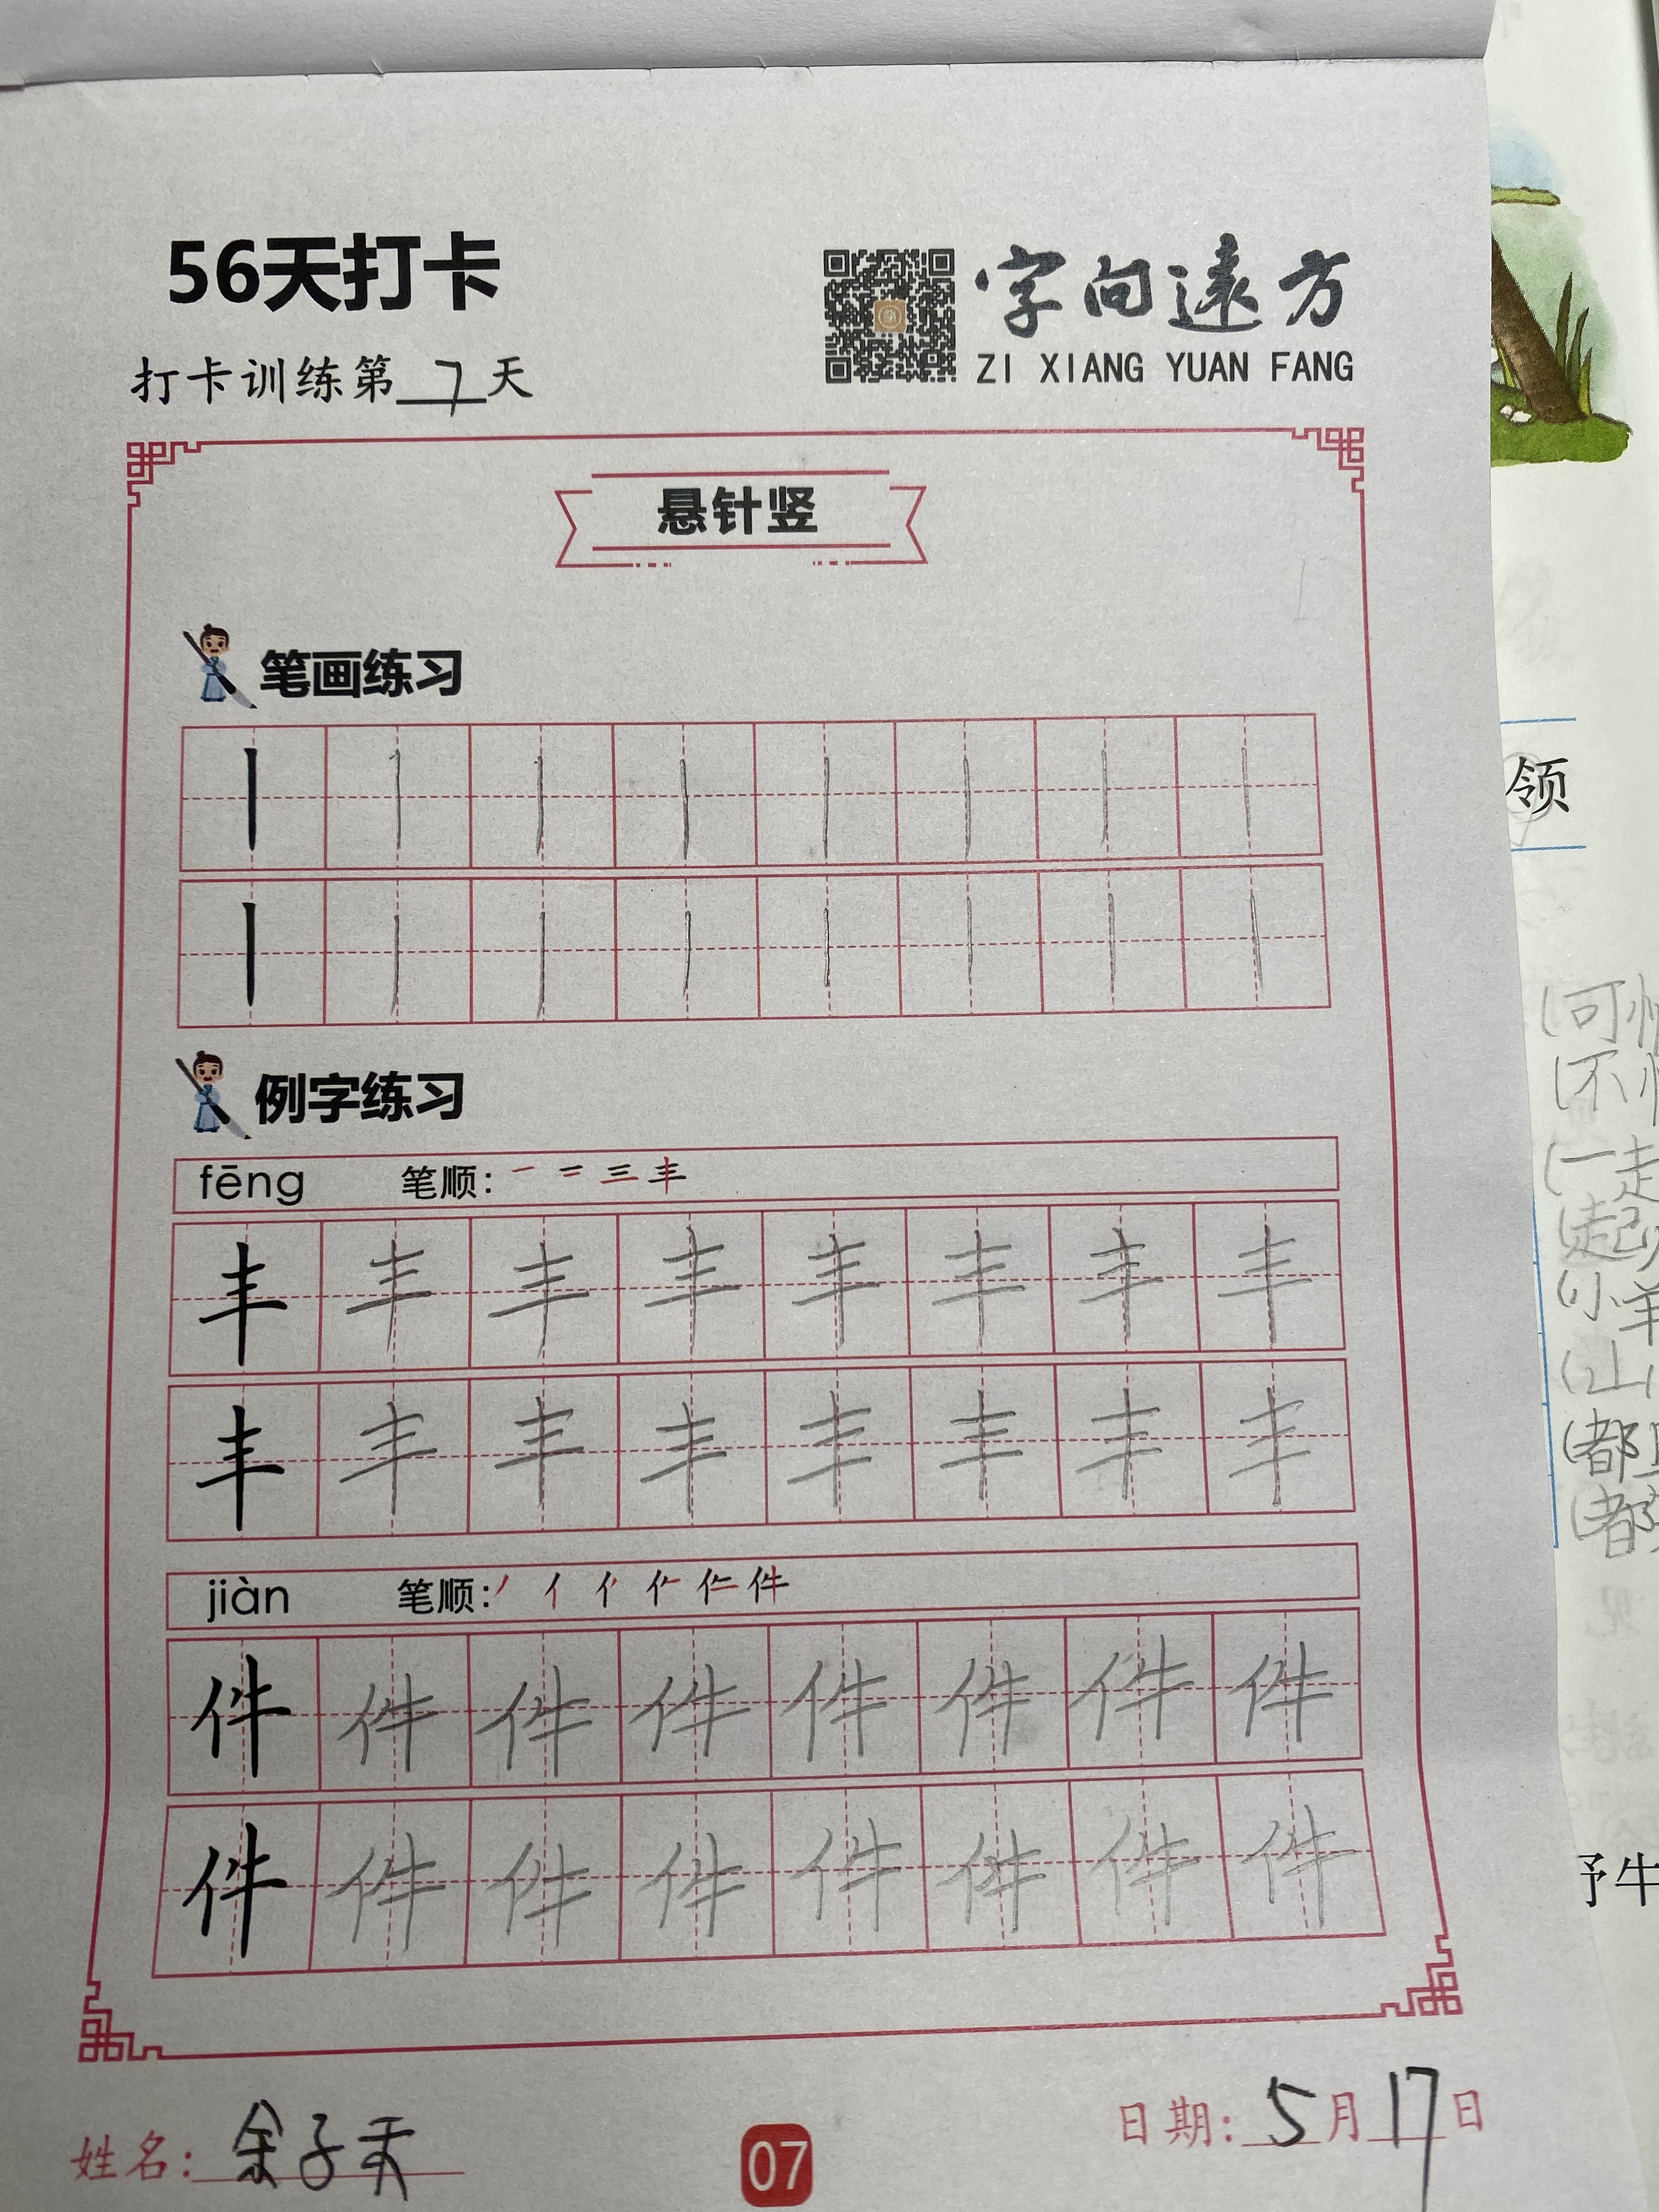 56天打卡
字向遠方
ZI XIANG YUAN FANG
打卡训练第7天
悬针竖
笔画练习
例字练习
fēng 笔顺: 一 二 三 丰
丰 丰 丰 丰 丰 丰 丰 丰
丰 丰 丰 丰 丰 丰 丰 丰
jiàn 笔顺: 丿 亻 件
件 件 件 件 件 件 件 件
件 件 件 件 件 件 件 件
姓名: 余子天
07
日期: 5月17日
领
(可
(不
(一走
(起
(小羊
(山
(都
(都
牛